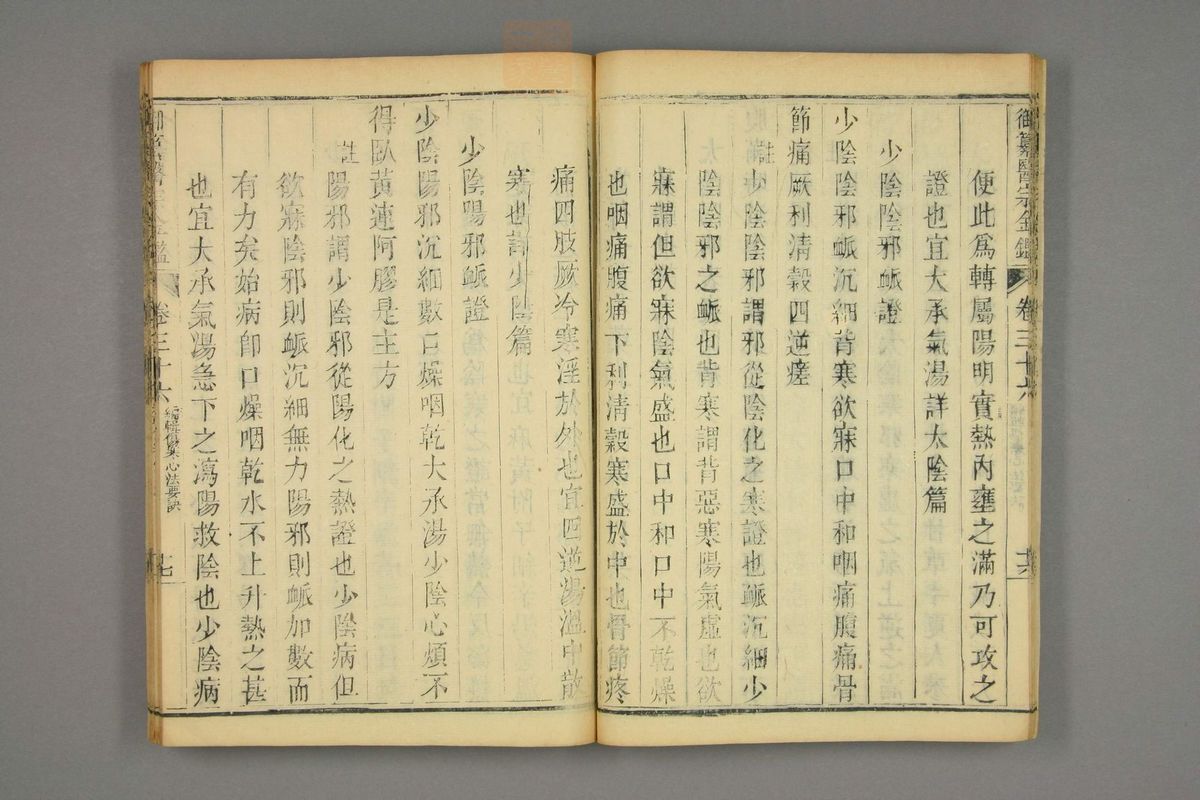 御纂醫宗金鑑 卷三十六 十六
便此爲轉屬陽明實熱內壅之滿乃可攻之
證也宜大承氣湯詳太陰篇
少陰陰邪脈證
少陰陰邪脈沉細背寒欲寐口中和咽痛腹痛骨
節痛厥利清穀四逆瘥
註少陰陰邪謂邪從陰化之寒證也脈沉細少
陰陰邪之脈也背寒謂背惡寒陽氣虛也欲
寐謂但欲寐陰氣盛也口中和口中不乾燥
也咽痛腹痛下利清穀寒盛於中也骨節疼
痛四肢厥冷寒淫於外也宜四逆湯溫中散
寒也詳少陰篇
少陰陽邪脈證
少陰陽邪沉細數口燥咽乾大承湯少陰心煩不
得臥黃連阿膠是主方
註陽邪謂少陰邪從陽化之熱證也少陰病但
欲寐陰邪則脈沉細無力陽邪則脈加數而
有力矣始病卽口燥咽乾水不上升熱之甚
也宜大承氣湯急下之瀉陽救陰也少陰病
卷三十六 編輯傷寒心法要訣 七